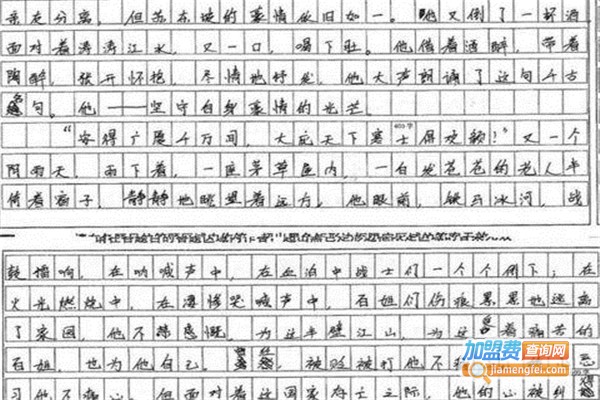 亲友分离，但苏东坡的豪情依旧如一。他又倒了一杯酒
面对着涛涛江水，又一口，喝下肚。他借着酒醉，带着
陶醉，张开怀抱，尽情地抒发，他大声朗诵了这句千古
句。他——坚守自身豪情的光芒。
"安得广厦千万间，大庇天下寒士俱欢颜！"又一个
600字
阴雨天，雨下着，一座茅草屋内，一白发苍苍的老人半
倚着窗子，静静地眺望着远方，他眼前，铁马冰河，战
鼓擂响，在呐喊声中，在血泊中战士们一个个倒下；在
火光燃烧中，在凄惨哭喊声中，百姓们伤痕累累地逃离
了家园，他不禁感慨，为这半壁江山，为这 着痛苦的
百姓，也为他自己。 被贬被打他不
习他不痛心，但面对着这国家存亡之际，他的心被
加盟费查询网
jiamengfei.com